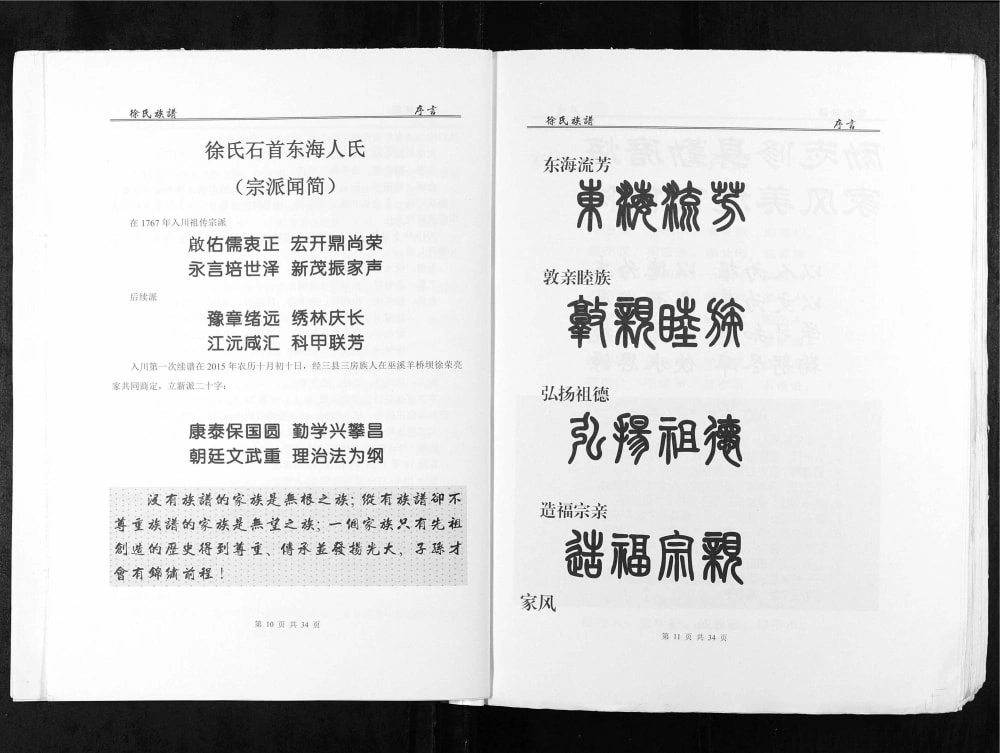 徐氏族譜 序言
徐氏石首东海人氏
（宗派闻简）
在1767年入川祖传宗派
啟佑儒衷正 宏开鼎尚荣
永言培世泽 新茂振家声
后续派
豫章绪远 绣林庆长
江沅咸汇 科甲联芳
入川第一次续谱在2015年农历十月初十日，经三县三房族人在巫溪羊桥坝徐荣亮
家共同商定，立新派二十字：
康泰保国圆 勤学兴攀昌
朝廷文武重 理治法为纲
沒有族譜的家族是無根之族；從有族譜卻不
尊重族譜的家族是無望之族；一個家族只有先祖
創造的歷史得到尊重、傳承並發揚光大，子孫才
會有錦綉前程！
第 10 页 共 34 页
徐氏族譜 序言
东海流芳
東海流芳
敦亲睦族
敦親睦族
弘扬祖德
弘揚祖德
造福宗亲
造福宗親
家风
第 11 页 共 34 页